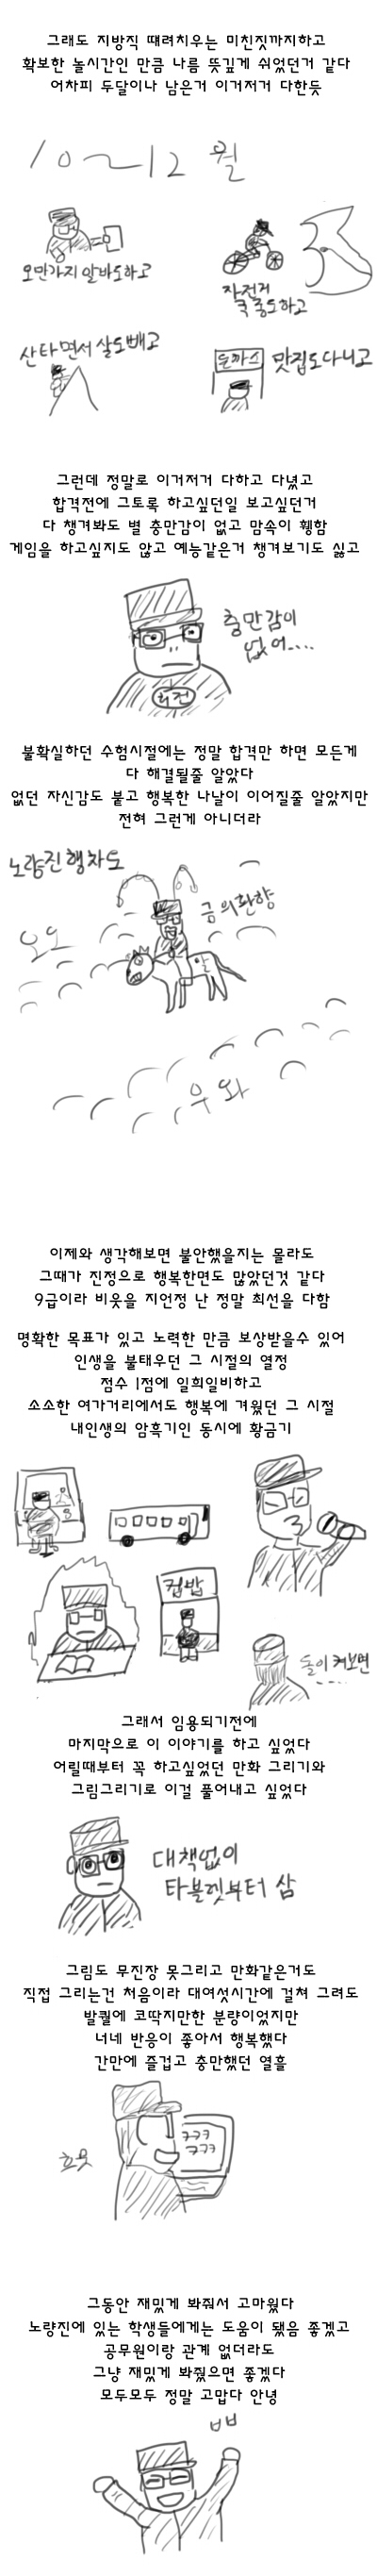 그래도 지방직 때려치우는 미친짓까지하고
확보한 놀시간인 만큼 나름 뜻깊게 쉬었던거 같다
어차피 두달이나 남은거 이거저거 다한듯
10~12 월
오만가지 알바도하고
자전거
국종도하고
산타면서 살도빼고
돈까스
맛집도다니고
그런데 정말로 이거저거 다하고 다녔고
합격전에 그토록 하고싶던일 보고싶던거
다 챙겨봐도 별 충만감이 없고 맘속이 휑함
게임을 하고싶지도 않고 예능같은거 챙겨보기도 싫고
충만감이
없어....
불확실하던 수험시절에는 정말 합격만 하면 모든게
다 해결될줄 알았다
없던 자신감도 붙고 행복한 나날이 이어질줄 알았지만
전혀 그런게 아니더라
노량진행차도
금의환향
오오
말
우와
이제와 생각해보면 불안했을지는 몰라도
그때가 진정으로 행복한면도 많았던것 같다
9급이라 비웃을 지언정 난 정말 최선을 다함
명확한 목표가 있고 노력한 만큼 보상받을수 있어
인생을 불태우던 그 시절의 열정
점수 1점에 일희일비하고
소소한 여가거리에서도 행복에 겨웠던 그 시절
내인생의 암흑기인 동시에 황금기
컵밥
돌이켜보면
....
그래서 임용되기전에
마지막으로 이 이야기를 하고 싶었다
어릴때부터 꼭 하고싶었던 만화 그리기와
그림그리기로 이걸 풀어내고 싶었다
대책없이
타블렛부터 삼
그림도 무진장 못그리고 만화같은거도
직접 그리는건 처음이라 대여섯시간에 걸쳐 그려도
발퀄에 코딱지만한 분량이었지만
너네 반응이 좋아서 행복했다
간만에 즐겁고 충만했던 열흘
ㅋㅋㅋ
ㅋㅋㅋ
흐뭇
그동안 재밌게 봐줘서 고마웠다
노량진에 있는 학생들에게는 도움이 됐음 좋겠고
공무원이랑 관계 없더라도
그냥 재밌게 봐줬으면 좋겠다
모두모두 정말 고맙다 안녕
ㅂㅂ